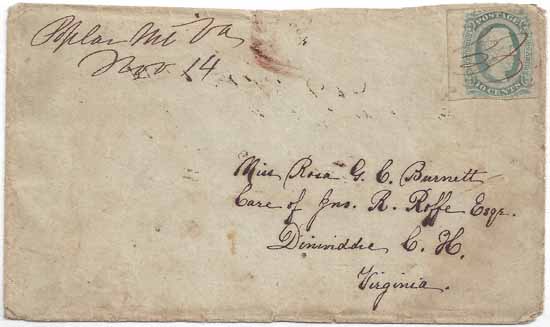 Poplar Mt Va
Nov 14
POSTAGE
10 CENTS
Miss Rosa G. C. Burnett
Care of Jno. R. Roffe Esqr.
Dinwiddie C. H.
Virginia.